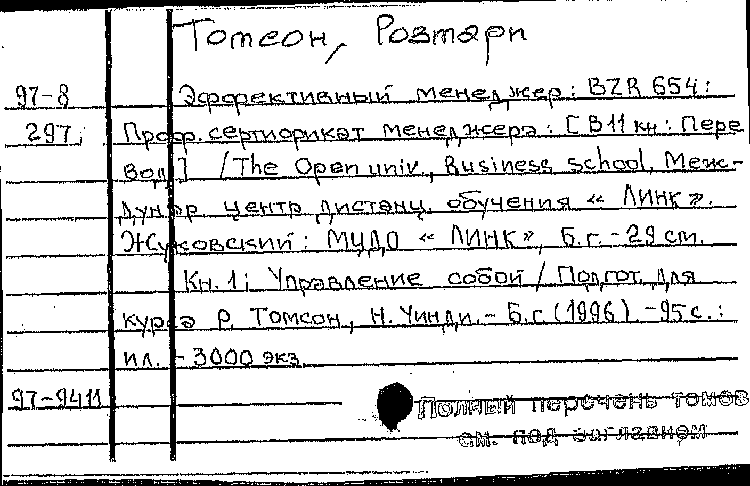 Томсон, Розмари
97-8 Эффективный менеджер: BZR 654:
297; Проф. сертификат менеджера: [В 11 кн: Пере
вод] / The Open univ., Business school, Меж-
дунар. центр дистанц. обучения « ЛИНК ».
Жуковский: МЦДО « ЛИНК », Б.г. - 29 см.
Кн. 1: Управление собой / Подгот. для
курса Р. Томсон, Н. Уинди. - Б.г. (1996). - 95 с.:
ил. - 3000 экз.
97-9411 Полный перечень томов
см. под заглавием